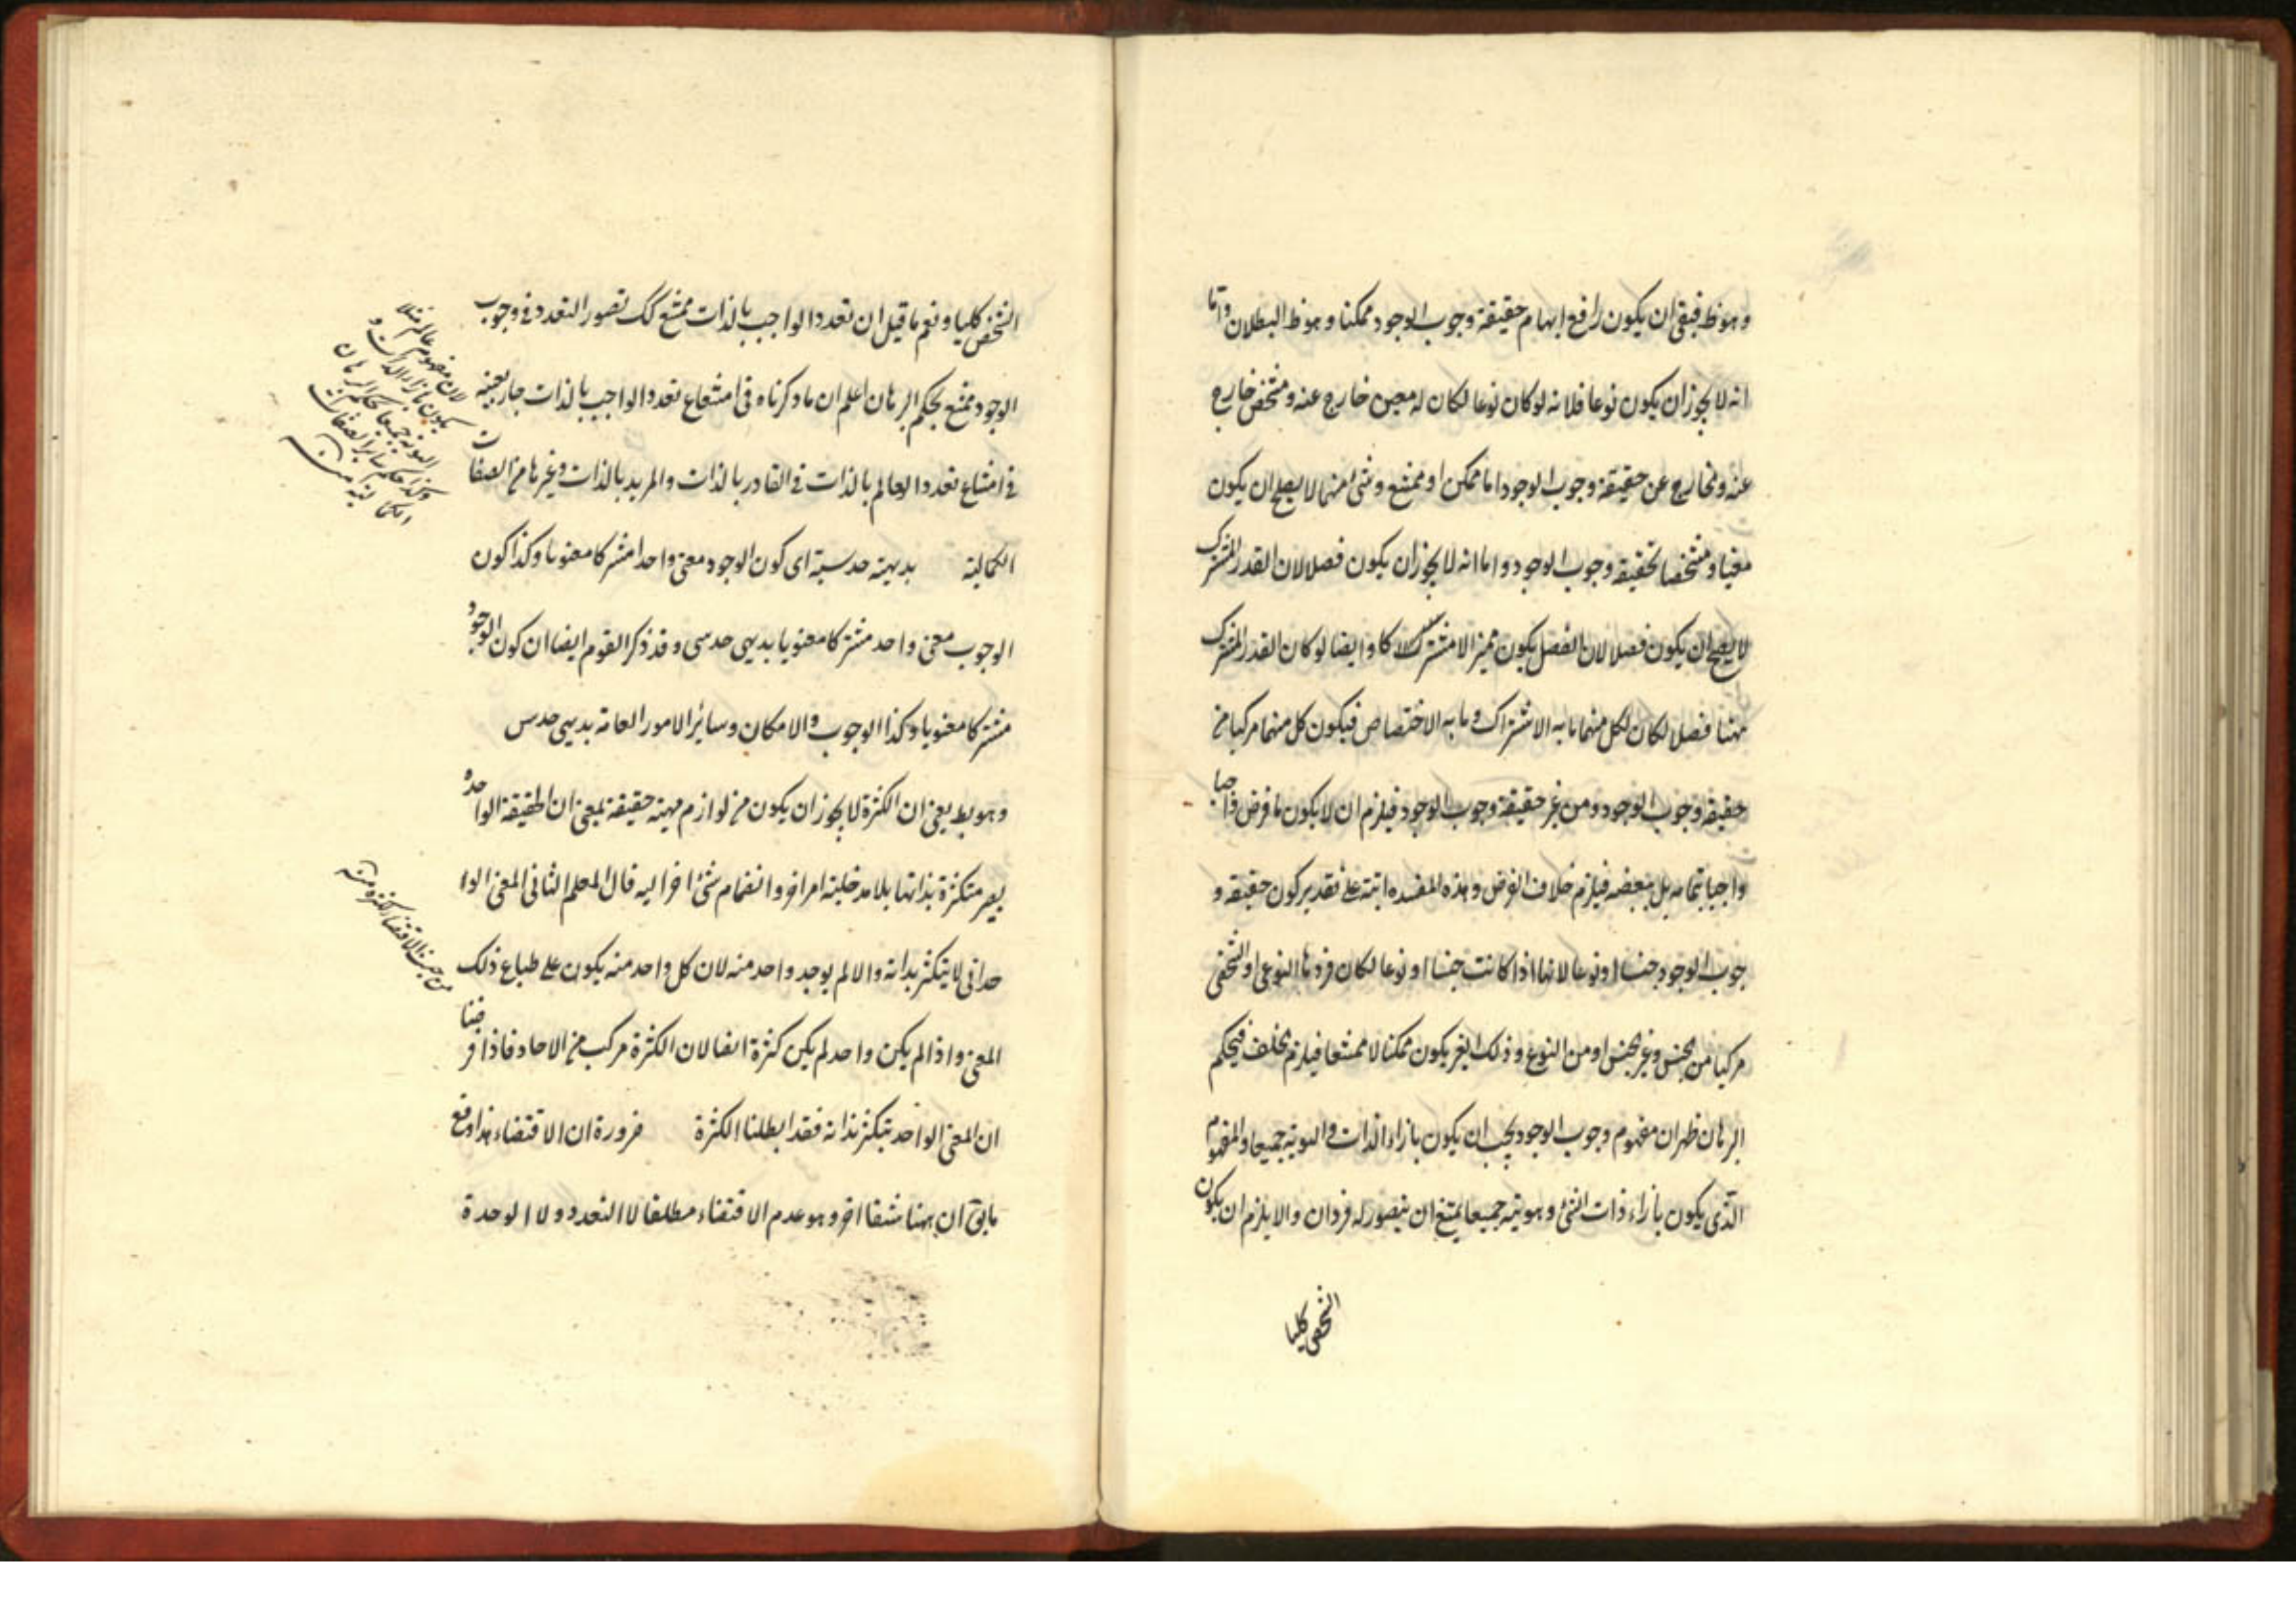 وهو ظ فبقى ان يكون رافع ابهام حقيقة وجوب الوجود ممكنا وهو ظ البطلان واما
انه لا يجوز ان يكون نوعا فلانه لو كان نوعا لكان له معين خارج عنه ومشخص خارج
عنه والخارج عن حقيقة وجوب الوجود اما ممكن او ممتنع وشئ منهما لا يصلح ان يكون
معينا ومشخصا لحقيقة وجوب الوجود واما انه لا يجوز ان يكون فصلا لان القدر المشترك
لا يصلح ان يكون فصلا لان الفصل يكون مميزا لا مشتركا وايضا لو كان القدر المشترك
ههنا فصلا لكان لكل منهما ما به الاشتراك وما به الاختصاص فيكون كل منهما مركبا من
حقيقة وجوب الوجود ومن غير حقيقة وجوب الوجود فيلزم ان لا يكون ما فرض واجبا
واجبا بتمامه بل ببعضه فيلزم خلاف الفرض وهذه المفسدة اتية على تقدير كون حقيقة و
جوب الوجود جنسا او نوعا لانها اذا كانت جنسا او نوعا لكان فردها النوعى او الشخصى
مركبا من الجنس وغير الجنس او من النوع و ذلك الغير يكون ممكنا لا ممتنعا فيلزم الخلف فبحكم
البرهان ظهر ان مفهوم وجوب الوجود يجب ان يكون بازاء الذات والهوية جميعا والمفهوم
الذى يكون بازاء ذات الشئ وهويته جميعا يمتنع ان يتصور له فردان والا يلزم ان يكون
الشخصى كليا
الشخص كليا ونعم ما قيل ان تعدد الواجب بالذات ممتنع كك تصور التعدد فى وجوب
الوجود ممتنع بحكم البرهان اعلم ان ما ذكرناه فى امتناع تعدد الواجب بالذات جار بعينه
فى امتناع تعدد العالم بالذات فى القادر بالذات والمريد بالذات وغيرها من الصفات
الكمالية بديهية حدسية اى كون الوجود معنى واحدا مشتركا معنويا وكذا كون
الوجوب معنى واحد مشتركا معنويا بديهى حدسى وقد ذكر القوم ايضا ان كون الوجود
مشتركا معنويا وكذا الوجوب والامكان وسائر الامور العامة بديهى حدس
وهو بط يعنى ان الكثرة لا يجوز ان يكون من لوازم مهية حقيقة بمعنى ان الحقيقة الواحدة
يصير متكثرة بذاتها بلا مدخلية امر اخر وانضمام شئ اخر اليه قال المعلم الثانى المعنى الوا
حدانى لا يتكثر بذاته والا لم يوجد واحد منه لان كل واحد منه يكون على طباع ذلك
المعنى واذا لم يكن واحد لم يكن كثرة ايضا لان الكثرة مركب من الاحاد فاذا فرضنا
ان المعنى الواحد يتكثر بذاته فقد ابطلنا الكثرة ضرورة ان الاقتضاء هذا دفع
ما يق ان ههنا شقا اخر وهو عدم الاقتضاء مطلقا لا التعدد ولا الوحدة
لان مفهوم عالم مثلا
يكون بازاء الذات و
الهوية جميعا بحكم البرهان
وكذا حكم سائر الصفات
الكمالية منه
من حيث الاقتضاء الكثرة منه